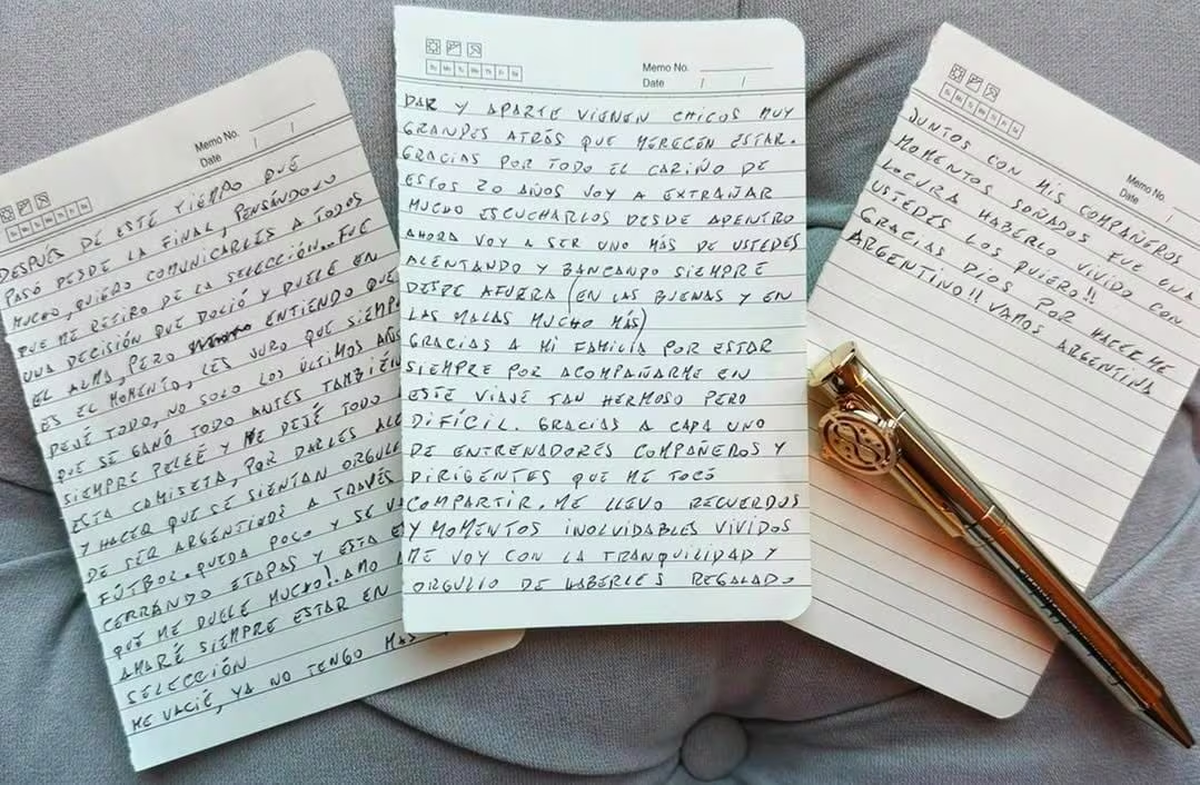 Memo No.
Date / /
DESPUÉS DE ESTE TIEMPO QUE
PASÓ DESDE LA FINAL, PENSÁNDOLO
MUCHO, QUIERO COMUNICARLES A TODOS
QUE ME RETIRO DE LA SELECCIÓN... FUE
UNA DECISIÓN QUE DOLIÓ Y DUELE EN
EL ALMA, PERO ENTIENDO QUE
ES EL MOMENTO, LES JURO QUE SIEMP
DEJÉ TODO, NO SOLO LOS ÚLTIMOS AÑOS
QUE SE GANÓ TODO ANTES TAMBIÉN
SIEMPRE PELEÉ Y ME DEJÉ TODO
ESTA CAMISETA, POR DARLES ALE
Y HACER QUE SE SIENTAN ORGULL
DE SER ARGENTINOS A TRAVÉS
FÚTBOL. QUEDA POCO Y SE VA
CERRANDO ETAPAS Y ESTA ES
QUE ME DUELE MUCHO!. AMO
AMARÉ SIEMPRE ESTAR EN
SELECCIÓN
ME VACIÉ, YA NO TENGO MAS
Memo No.
Date / /
DAR Y APARTE VIENEN CHICOS MUY
GRANDES ATRÁS QUE MERECEN ESTAR.
GRACIAS POR TODO EL CARIÑO DE
ESTOS 20 AÑOS VOY A EXTRAÑAR
MUCHO ESCUCHARLOS DESDE ADENTRO
AHORA VOY A SER UNO MÁS DE USTEDES
ALENTANDO Y BANCANDO SIEMPRE
DESDE AFUERA (EN LAS BUENAS Y EN
LAS MALAS MUCHO MÁS)
GRACIAS A MI FAMILIA POR ESTAR
SIEMPRE POR ACOMPAÑARME EN
ESTE VIAJE TAN HERMOSO PERO
DIFÍCIL. GRACIAS A CADA UNO
DE ENTRENADORES COMPAÑEROS Y
DIRIGENTES QUE ME TOCÓ
COMPARTIR. ME LLEVO RECUERDOS
Y MOMENTOS INOLVIDABLES VIVIDOS
ME VOY CON LA TRANQUILIDAD Y
ORGULLO DE HABERLES REGALADO
Memo No.
Date /
JUNTOS CON MIS COMPAÑEROS
MOMENTOS SOÑADOS FUE UNA
LOCURA HABERLO VIVIDO CON
USTEDES LOS QUIERO!!
GRACIAS DIOS POR HACERME
ARGENTINO!! VAMOS
ARGENTINA